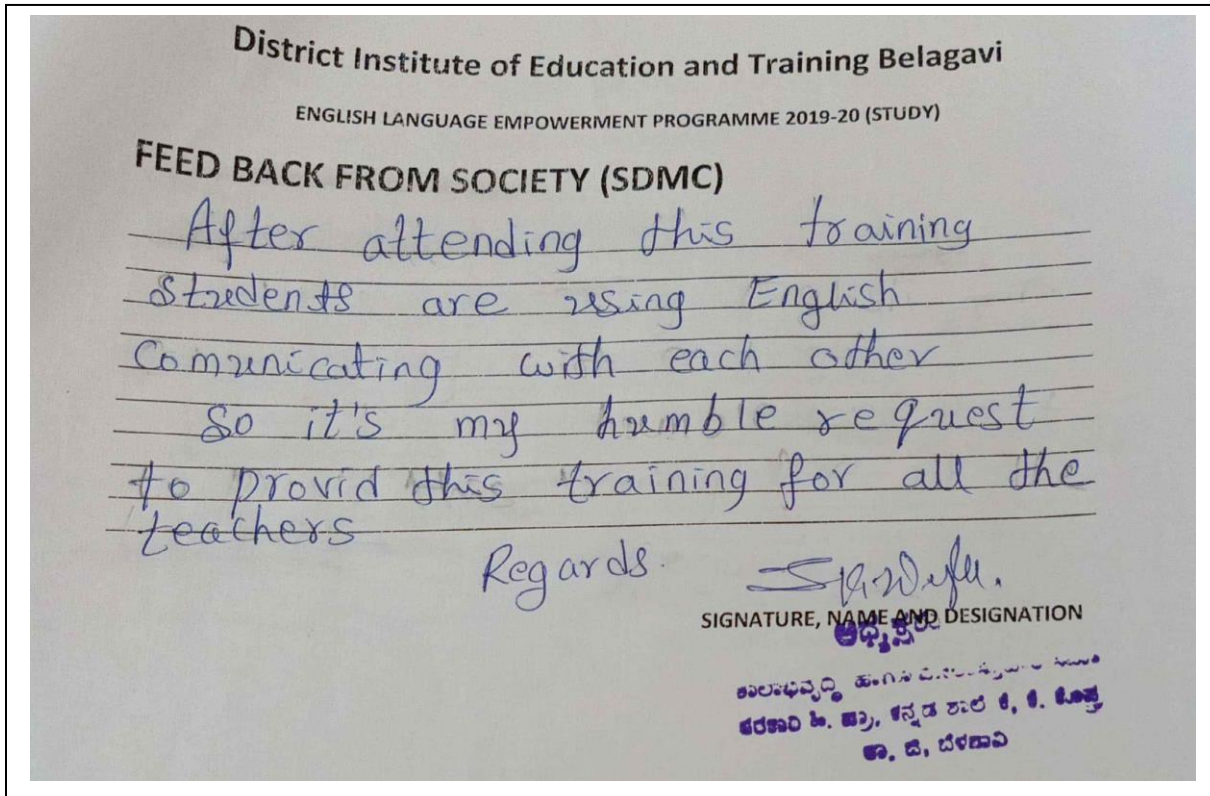 District Institute of Education and Training Belagavi
ENGLISH LANGUAGE EMPOWERMENT PROGRAMME 2019-20 (STUDY)
FEED BACK FROM SOCIETY (SDMC)
After attending this training
students are using English
Comunicating with each other
So it's my humble request
to provid this training for all the
teachers
Regards.
SIGNATURE, NAME AND DESIGNATION
ಅಧ್ಯಕ್ಷರು
ಸರಕಾರಿ ಹಿ. ಪ್ರಾ, ಕನ್ನಡ ಶಾಲೆ ಕೆ, ಕೆ. ಕೊಪ್ಪ
ತಾ, ಜಿ, ಬೆಳಗಾವಿ